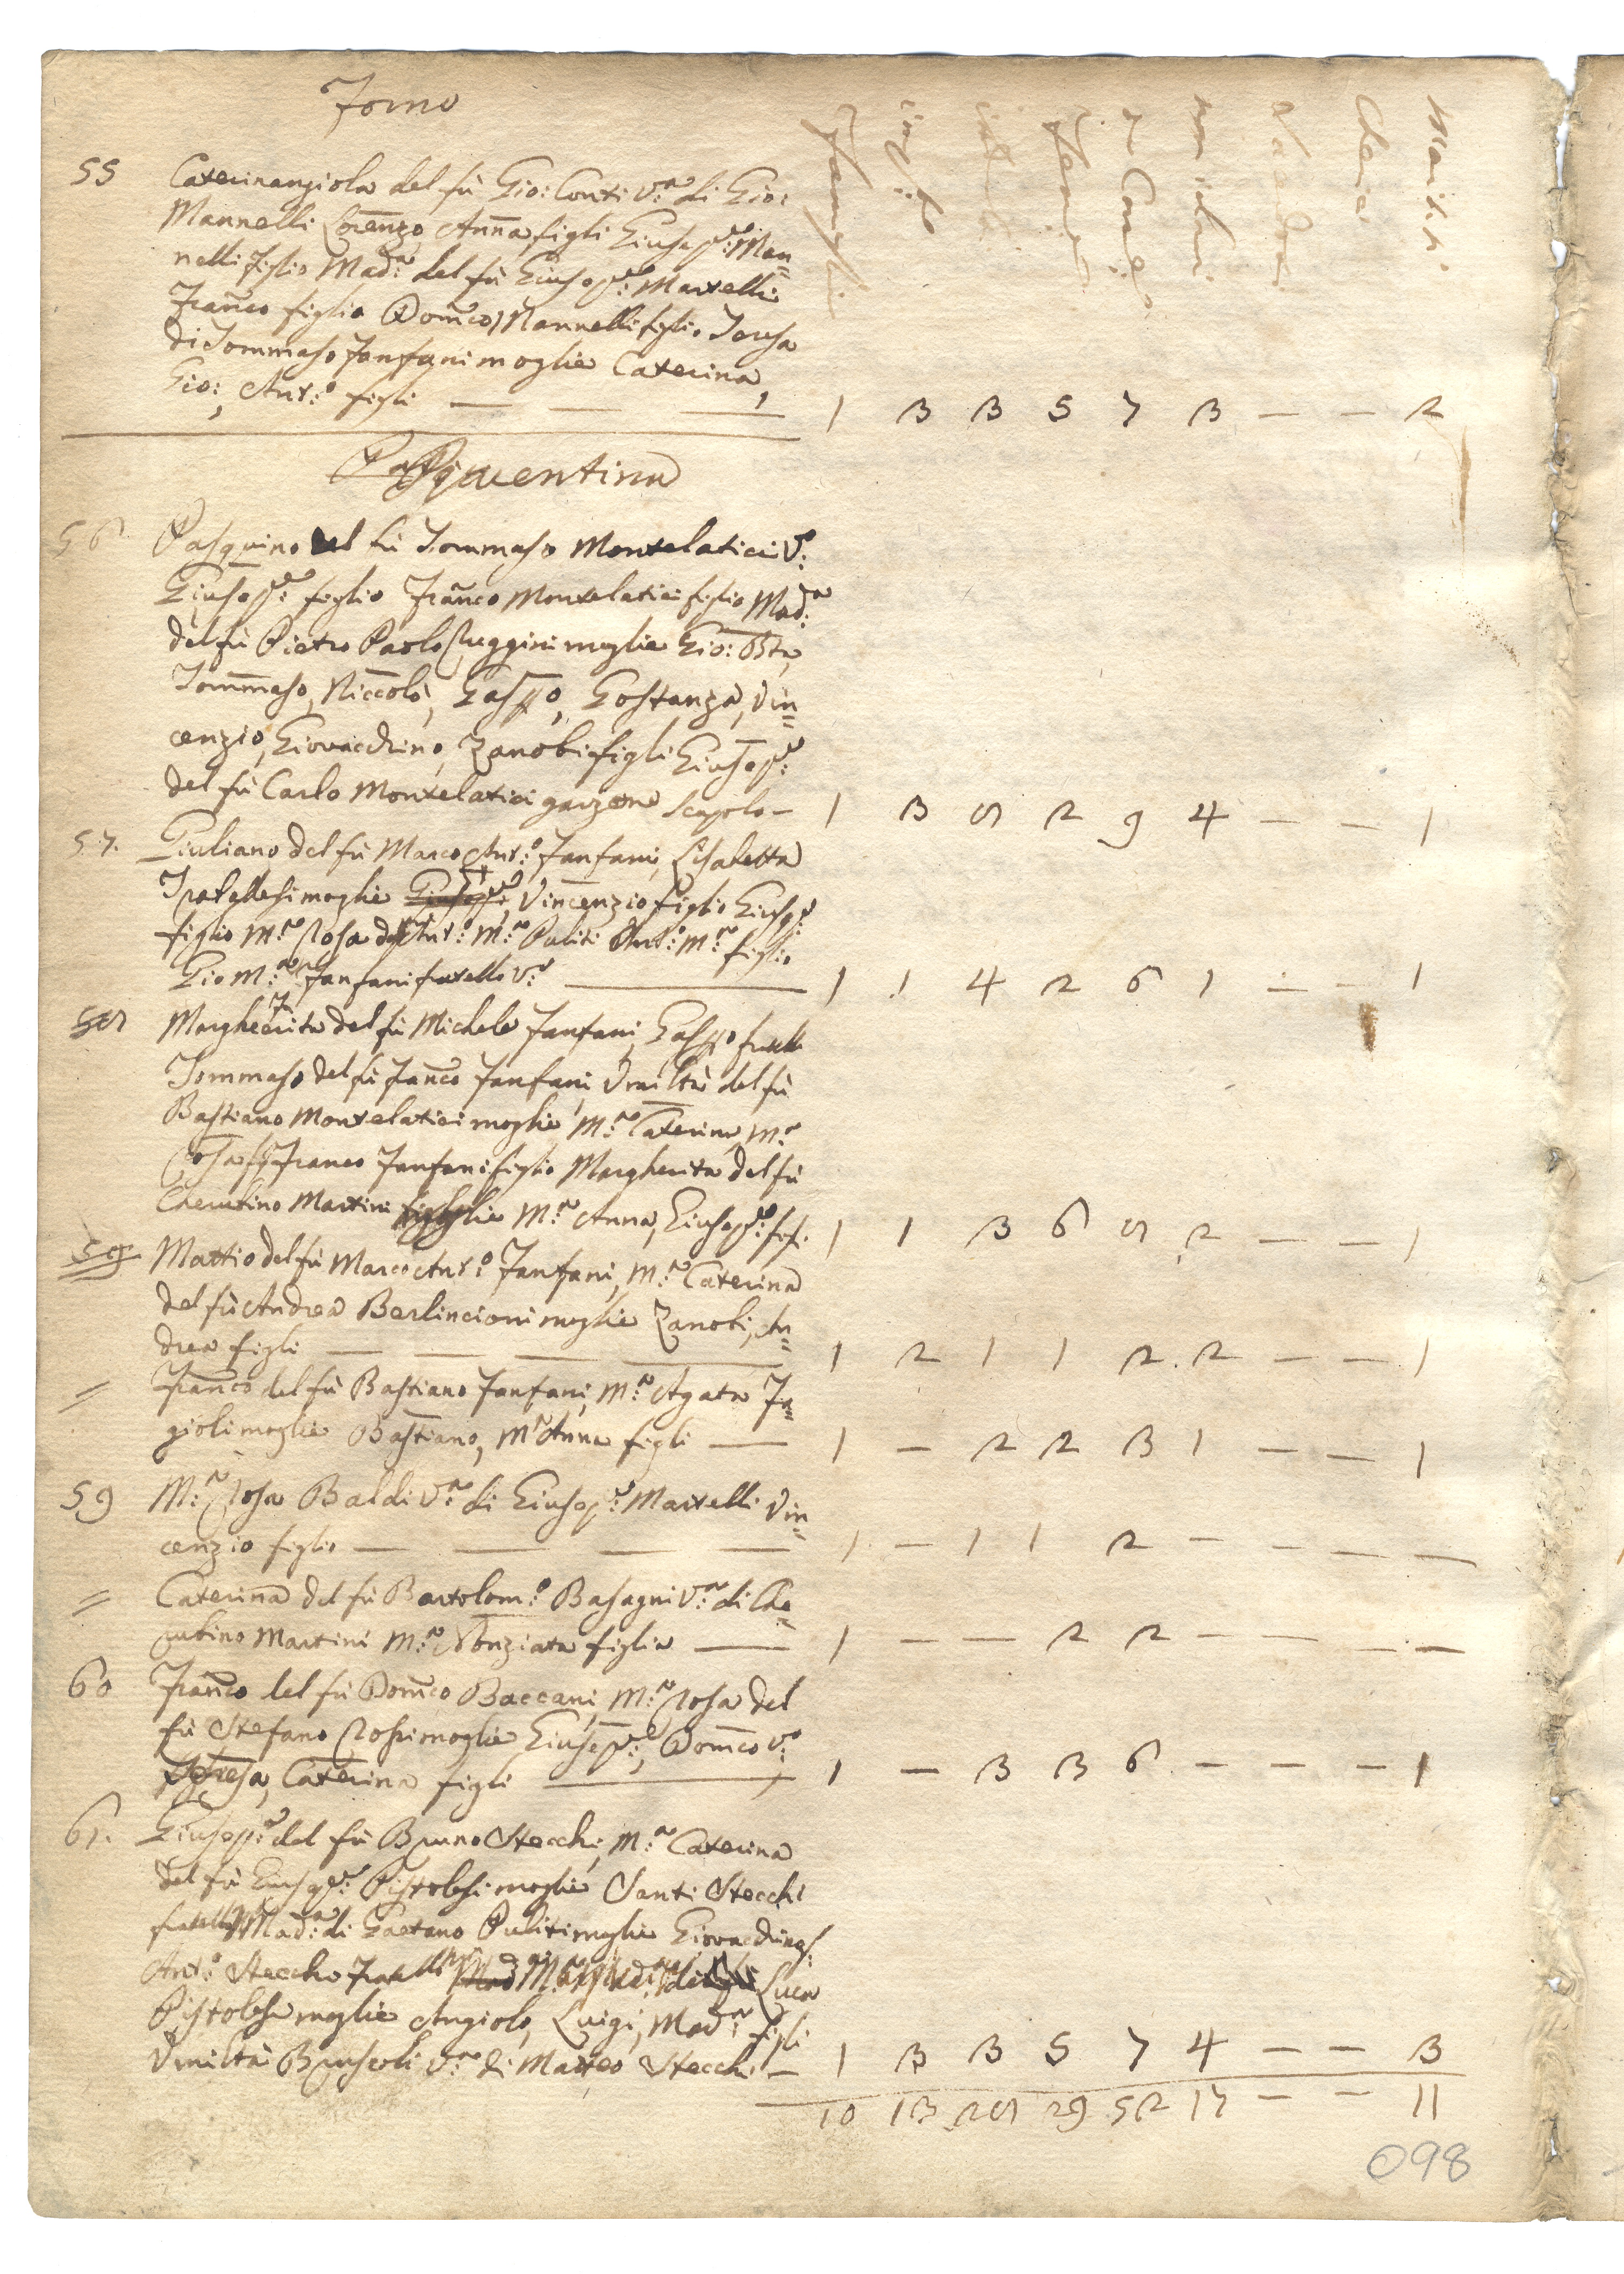 Torno
55 Caterinangiola del fù Gio: Conti v.ª di Gio:
Mannelli Lorenzo, Anna figli Giusep.e Man=
nelli figlio Mad.ª del fù Giusep.e Martelli
Franco figlio Domco Mannelli figlio Teresa
di Tommaso Fanfani moglie Caterina,
Gio:, Ant.º figli — — — 1 3 3 5 7 3 — — 2
56 Pasquino del fù Tommaso Montelatici V.º
Giusep.e figlio Franco Montelatici figlio Mad.ª
del fù Pietro Paolo Ruggini moglie Gio: Bta,
Tommaso, Niccolò, Gasp.o, Gostanza, Vin=
cenzio, Giovacchino, Zanobi figli Giusep.e
del fù Carlo Montelatici garzone scapolo — 1 3 8 2 9 4 — — 1
57. Giuliano del fù Marco Ant.º Fanfani, Lisabetta
moglie Giusep.e, Vincenzio figlio Giusep.e
figlio M.ª Rosa di Ant.º M.ª Puliti Ant.º M.ª figlio
Gio M.ª Fanfani fratello V.º — 1 1 4 2 6 1 — — 1
58 Margherita del fù Michele Fanfani, Gasp.o fratello
Tommaso del fù Franco Fanfani, Umiltà del fù
Bastiano Montelatici moglie M.ª Caterina, M.ª
Rosa Franco Fanfani figlio Margherita del fù
Cherubino Martini moglie M.ª Anna, Giusep.e figli 1 1 3 6 8 2 — — 1
Mattio del fù Marco Ant.º Fanfani, M.ª Caterina
del fù Andrea Berlincioni moglie Zanobi, An=
drea figli — — — — 1 2 1 1 2. 2 — — 1
= Franco del fù Bastiano Fanfani, M.ª Agata Fa=
gioli moglie Bastiano, M.ª Anna figli — 1 — 2 2 3 1 — — 1
59 M.ª Rosa Baldi V.ª di Giusep.e Martelli Vin=
cenzio figlio — — — — 1 — 1 1 2 — — — —
= Caterina del fù Bartolom.º Basagni V.ª di Che=
rubino Martini M.ª Nonziata figlia — 1 — — 2 2 — — — —
60 Franco del fù Domco Baccani, M.ª Rosa del
fù Stefano Rossi moglie Giusep.e, Domco V.º
Teresa, Caterina figli — 1 — 3 3 6 — — — 1
61. Giusep.e del fù Bruno Stecchi, M.ª Caterina
del fù Giusep.e Pistolesi moglie Santi Stecchi
fratello Mad.ª di Gaetano Puliti moglie Giovacchino f.
Ant.º Stecchi fratello Luca
Pistolesi moglie Angiolo, Luigi, Mad.ª figli
Umiltà Bruscoli V.ª di Matteo Stecchi — 1 3 3 5 7 4 — — 3
10 13 28 29 52 17 — — 11
098